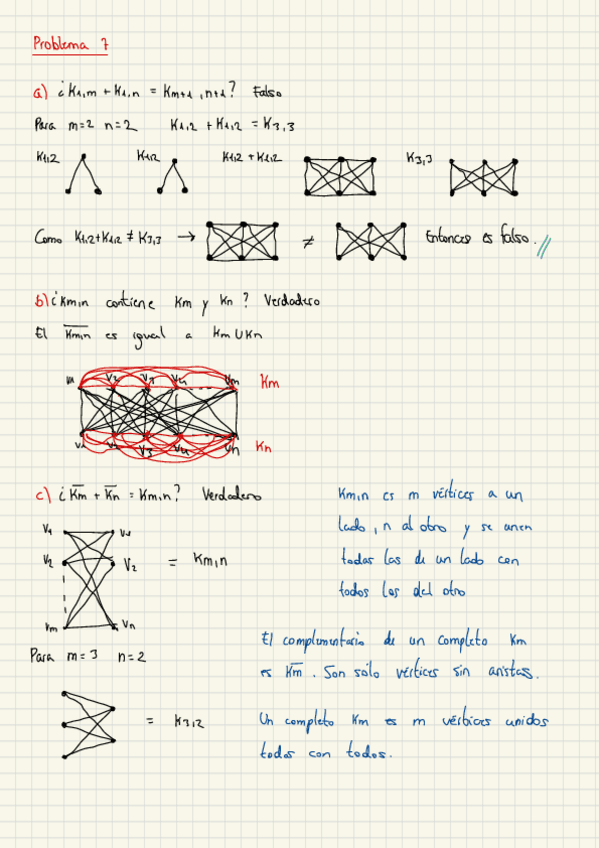 Problema 7
a) ¿ K1,m + K1,n = Km+1,n+1? Falso
Para m=2 n=2 K1,2 + K1,2 = K3,3
K1,2 K1,2 K1,2 + K1,2 K3,3
Como K1,2+K1,2 ≠ K3,3 → ≠ Entonces es falso.
b) ¿ Km,n contiene Km y Kn ? Verdadero
El K̅m̅,̅n̅ es igual a Km U Kn
V1 V2 V3 V4 Vm Km
V1 V3 V4 Vn Kn
c) ¿ K̅m̅ + K̅n̅ = Km,n? Verdadero
V1 V1
V2 V2 = Km,n
Vm Vn
Para m=3 n=2
= K3,2
Km,n es m vértices a un
lado, n al otro y se unen
todas las de un lado con
todos los del otro
El complementario de un completo Km
es K̅m̅. Son sólo vértices sin aristas.
Un completo Km es m vértices unidos
todos con todos.